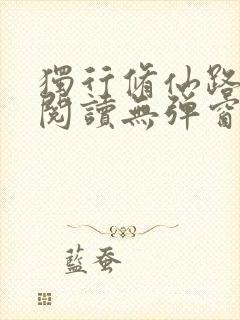 獨行脩仙路
閱讀無彈窗
藍蚕